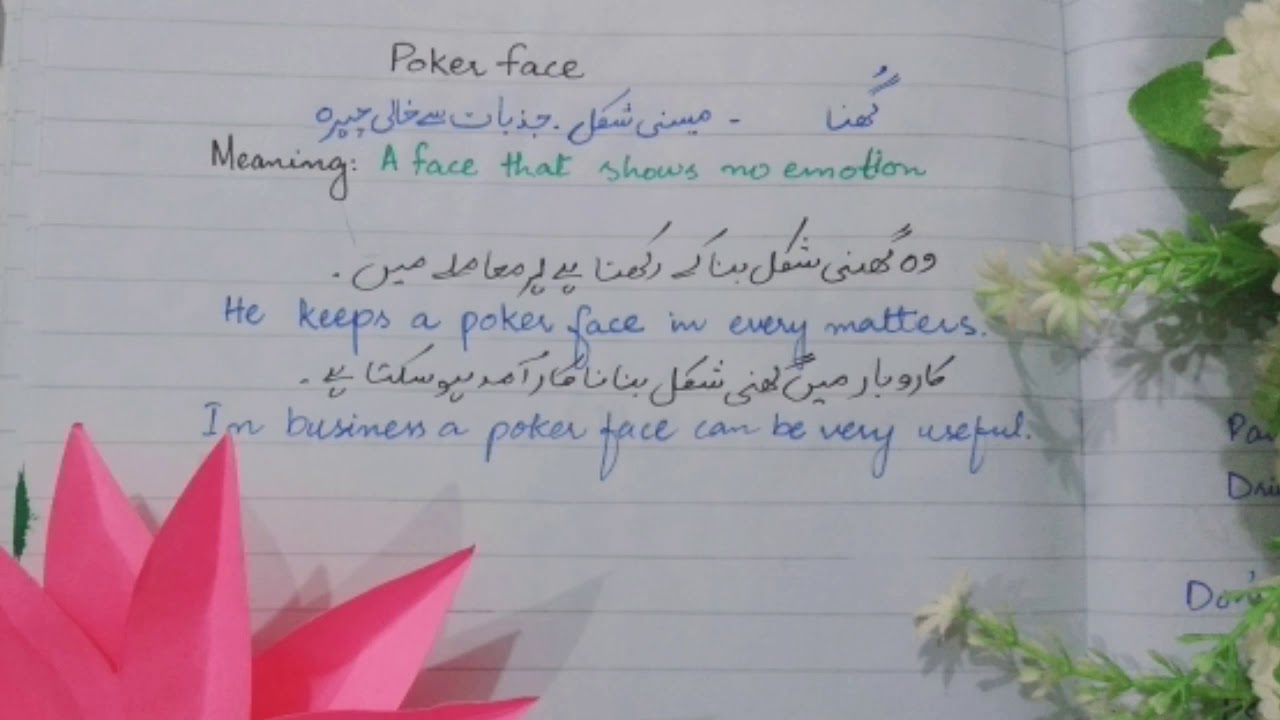 Poker face
گُھنا - میسنی شکل . جذبات سے خالی چہرہ
Meaning: A face that shows no emotion
وہ گھنی شکل بنا کے رکھتا ہے ہر معاملے میں .
He keeps a poker face in every matters.
کاروبار میں گھنی شکل بنانا کارآمد ہو سکتا ہے .
In business a poker face can be very useful.